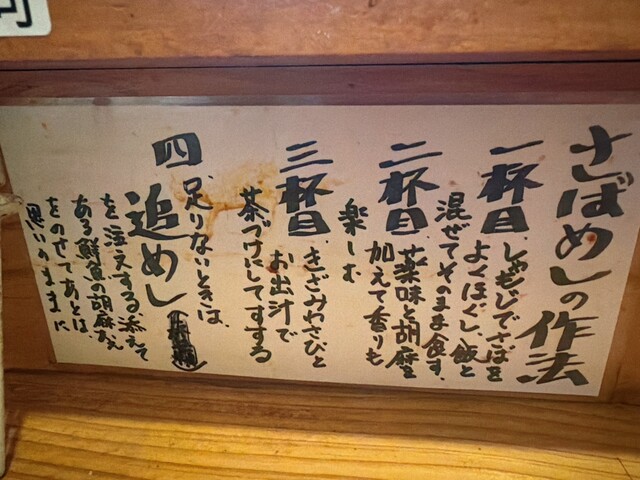 可
さばめしの作法
一杯目、しゃもじでさばを
よくほぐし、飯と
混ぜてそのまま食す、
二杯目、薬味と胡麻を
加えて香りも
楽しむ
三杯目、きざみわさびと
お出汁で
茶づけにしてすする
四、足りないときは、
追めし
を注文する、添えて
ある鮮魚の胡麻あえ
をのせてあとは、
思いのままに